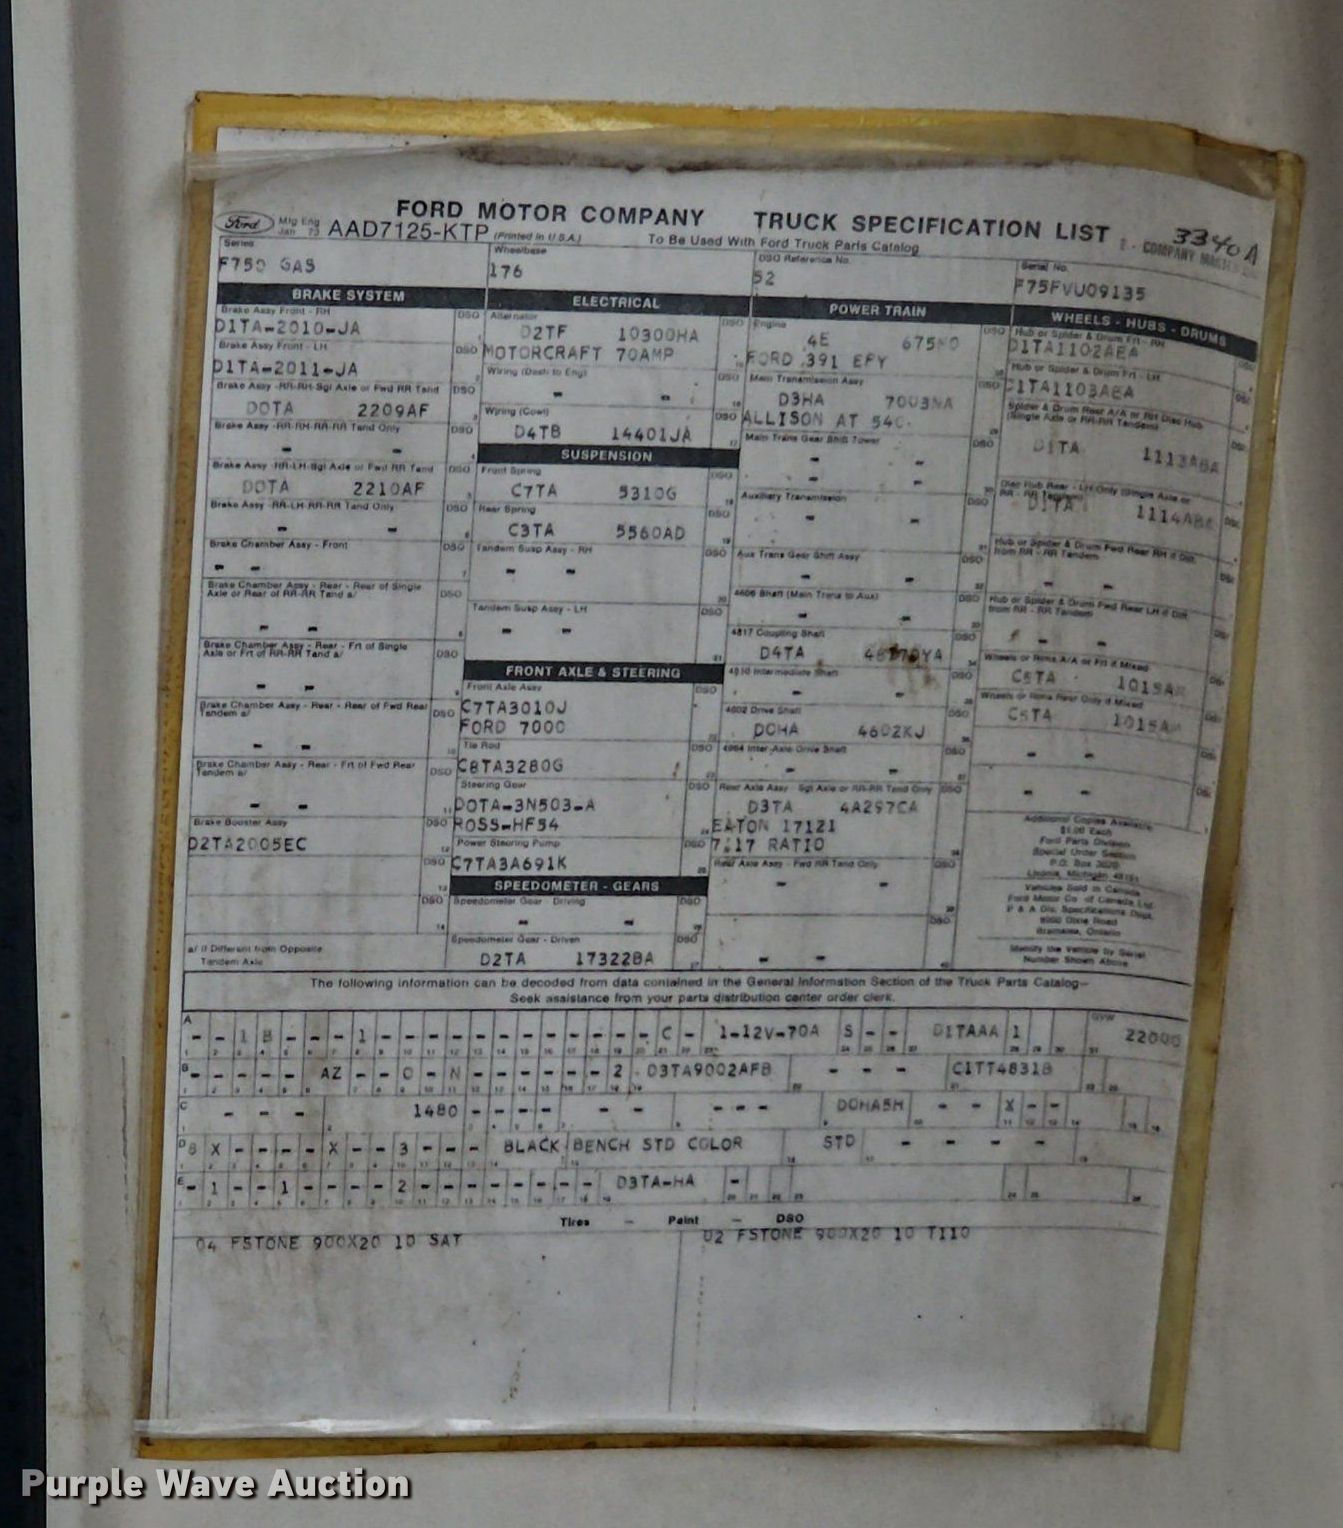 FORD MOTOR COMPANY TRUCK SPECIFICATION LIST
Ford Mfg Eng Jan 73 AAD7125-KTP (Printed in U.S.A.) To Be Used With Ford Truck Parts Catalog
3340A
Series Wheelbase DSO Reference No. Serial No.
F750 GAS 176 52 F75FVU09135
BRAKE SYSTEM
Brake Assy Front - RH DSO
D1TA-2010-JA
Brake Assy Front - LH DSO
D1TA-2011-JA
Brake Assy -RR-RH-Sgl Axle or Fwd RR Tand DSO
DOTA 2209AF
Brake Assy -RR-RH-RR-RR Tand Only DSO
- -
Brake Assy -RR-LH-Sgl Axle or Fwd RR Tand DSO
DOTA 2210AF
Brake Assy -RR-LH-RR-RR Tand Only DSO
- -
Brake Chamber Assy - Front DSO
- -
Brake Chamber Assy - Rear - Rear of Single DSO
Axle or Rear of RR-RR Tand a/
- -
Brake Chamber Assy - Rear - Frt of Single DSO
Axle or Frt of RR-RR Tand a/
- -
Brake Chamber Assy - Rear - Rear of Fwd Rear DSO
Tandem a/
- -
Brake Chamber Assy - Rear - Frt of Fwd Rear DSO
Tandem a/
- -
Brake Booster Assy DSO
D2TA2005EC
DSO
DSO
a/ If Different from Opposite
Tandem Axle
ELECTRICAL
Alternator DSO
D2TF 10300HA
MOTORCRAFT 70AMP
Wiring (Dash to Eng) DSO
- -
Wiring (Cowl) DSO
D4TB 14401JA
SUSPENSION
Front Spring DSO
C7TA 5310G
Rear Spring DSO
C3TA 5560AD
Tandem Susp Assy - RH DSO
- -
Tandem Susp Assy - LH DSO
- -
FRONT AXLE & STEERING
Front Axle Assy DSO
C7TA3010J
FORD 7000
Tie Rod DSO
C8TA3280G
Steering Gear DSO
DOTA-3N503-A
ROSS-HF54
Power Steering Pump DSO
C7TA3A691K
SPEEDOMETER - GEARS
Speedometer Gear - Driving DSO
- -
Speedometer Gear - Driven DSO
D2TA 17322BA
POWER TRAIN
Engine DSO
4E
FORD 391 EFY
Main Transmission Assy DSO
D3HA 7003NA
ALLISON AT 540
Main Trans Gear Shift Tower DSO
- -
- -
Auxiliary Transmission DSO
- -
Aux Trans Gear Shift Assy DSO
- -
4606 Shaft (Main Trans to Aux) DSO
- -
4817 Coupling Shaft DSO
D4TA
4810 Intermediate Shaft DSO
- -
4602 Drive Shaft DSO
DOHA 4602KJ
4964 Inter Axle Drive Shaft DSO
- -
Rear Axle Assy Sgl Axle or RR-RR Tand Only DSO
D3TA 4A297CA
EATON 17121
7.17 RATIO
Rear Axle Assy - Fwd RR Tand Only DSO
- -
DSO
- -
WHEELS - HUBS - DRUMS
Hub or Spider & Drum Frt - RH
D1TA1102AEA
Hub or Spider & Drum Frt - LH
D1TA1103AEA
Spider & Drum Rear A/A or RH Disc Hub
(Single Axle or RR-RR Tandem)
D1TA 1113ABA
Disc Hub Rear - LH Only (Single Axle or
RR - RR Tandem)
D1TA 1114ABA
Hub or Spider & Drum Fwd Rear RH if Diff.
from RR - RR Tandem
- -
Hub or Spider & Drum Fwd Rear LH if Diff.
from RR - RR Tandem
- -
Wheels or Rims A/A or Frt if Mixed
C5TA
Wheels or Rims Rear Only if Mixed
C5TA
- -
- -
Additional Copies Available
$1.00 Each
Ford Parts Division
Special Order Section
P.O. Box 3020
Livonia, Michigan 48151
Vehicles Sold in Canada
Ford Motor Co of Canada Ltd.
P & A Div. Specifications Dept.
Bramalea, Ontario
Identify the Vehicle by Serial
Number Shown Above
The following information can be decoded from data contained in the General Information Section of the Truck Parts Catalog—
Seek assistance from your parts distribution center order clerk.
A - - 1 B - - - 1 - - - - - - - - - - - - C - 1-12V-70A S - - D1TAAA 1 GVW 22000
B - - - - - - AZ - - O - N - - - - - - 2 D3TA9002AFB - - - C1TT4831B
C - - - 1480 - - - - - - - - - DOHA5H - - X - -
D 8 X - - - - X - - 3 - - - BLACK BENCH STD COLOR STD - - - -
E - 1 - - 1 - - - - 2 - - - - - - - - D3TA-HA -
Tires - Paint - DSO
04 FSTONE 900X20 10 SAT 02 FSTONE 900X20 10 T110
Purple Wave Auction